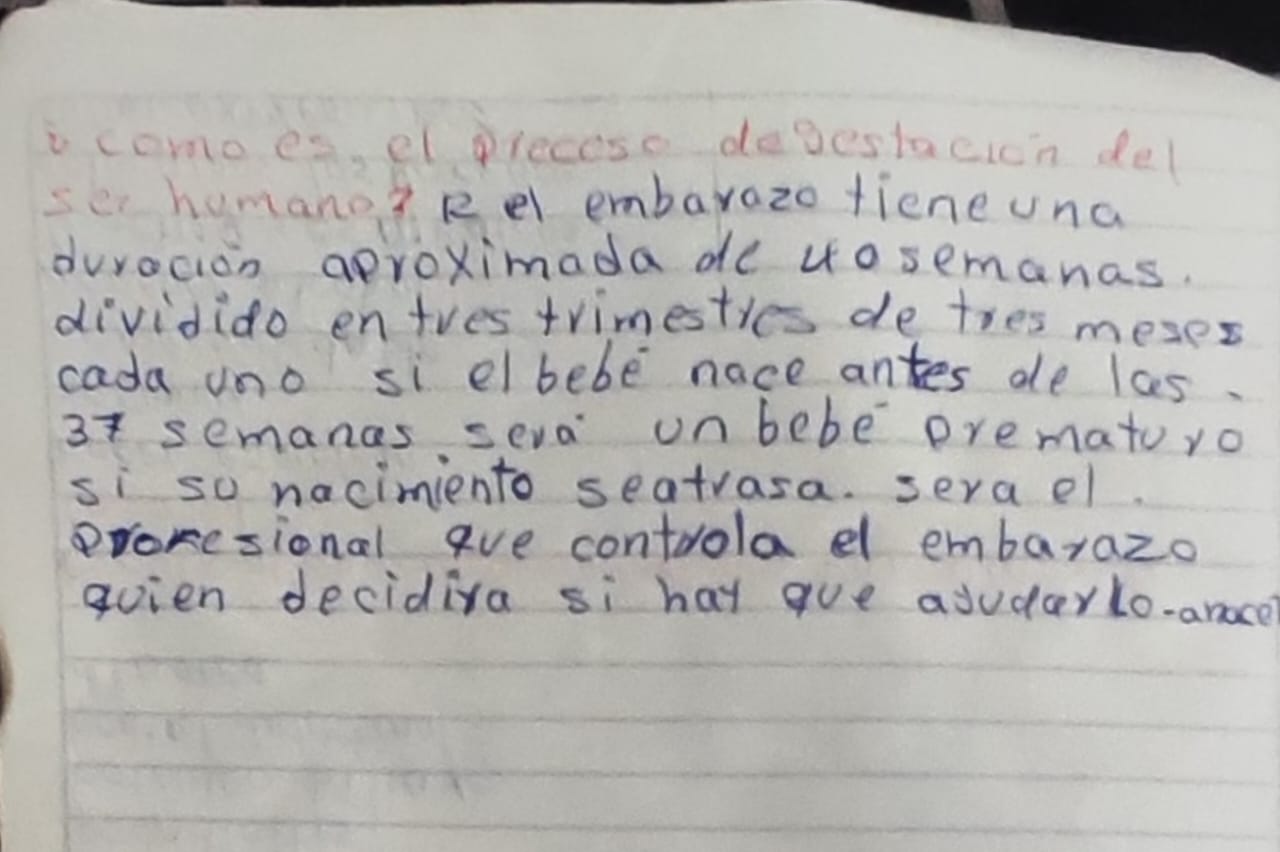 ¿como es, el proceso de Gestación del
ser humano? R el embarazo tiene una
duración aproximada de 40 semanas.
dividido en tres trimestres de tres meses
cada uno si el bebé nace antes de las.
37 semanas. será un bebé prematuro
si su nacimiento se atrasa. sera el.
profesional que controla el embarazo
quien decidira si hay que ayudarlo-anacer